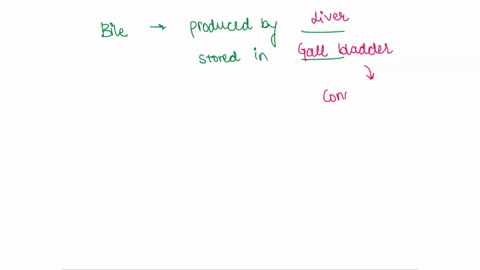 Bile → produced by Liver
stored in Gall bladder
↓
Con